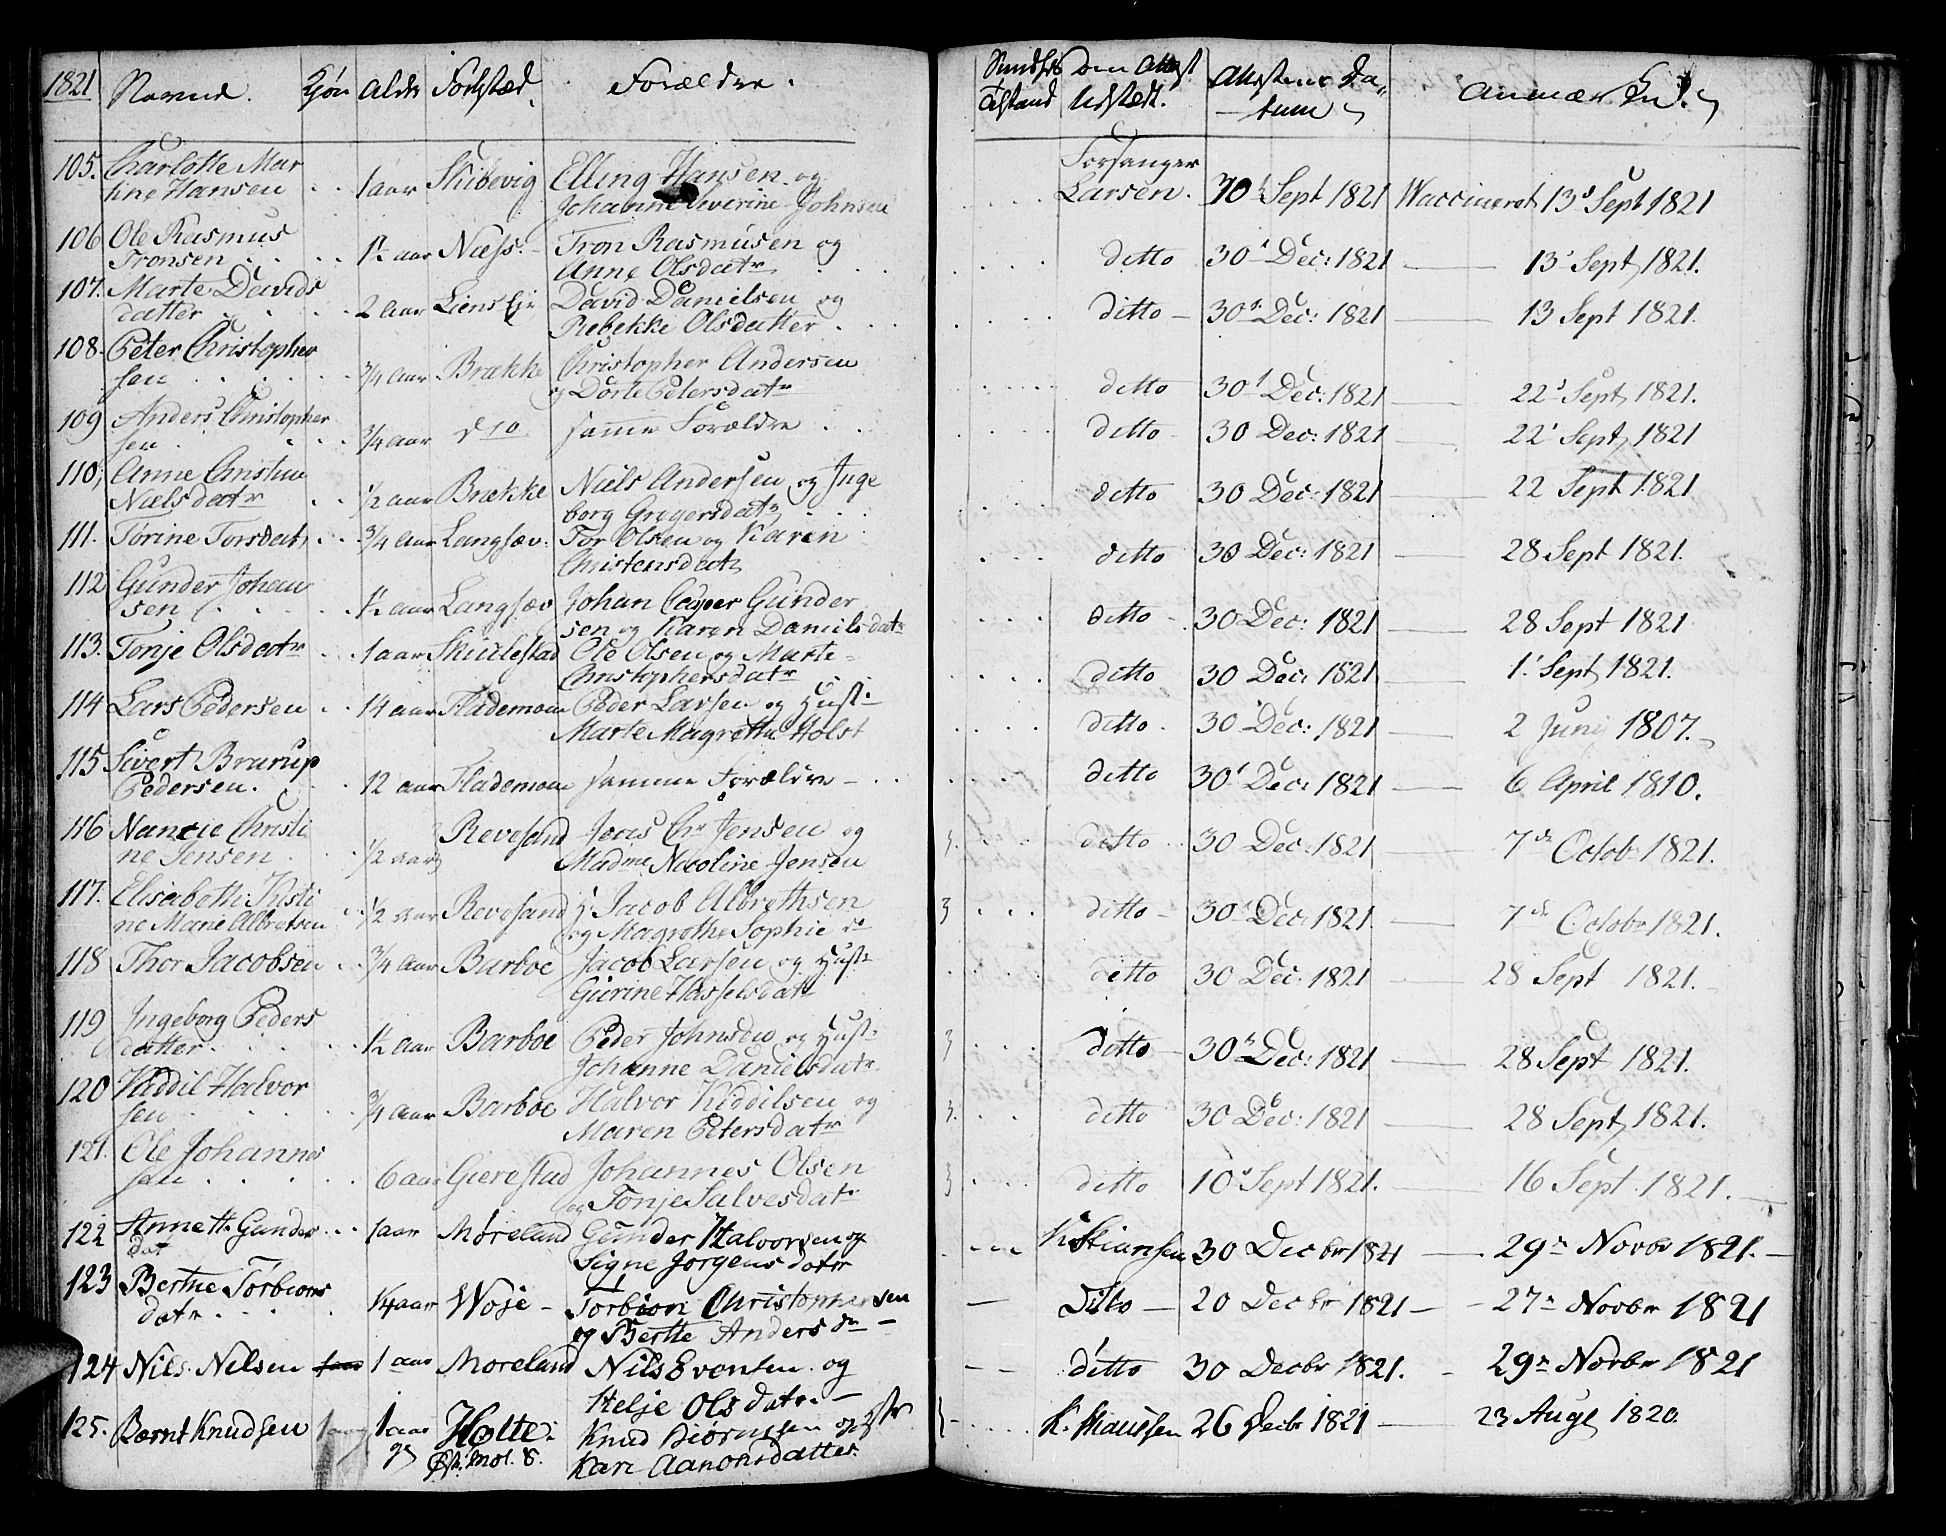 1821 Navne. Kjøn Alder Fødested. Forældre.
Attestens Da-
Tilstand Udstædt. tum
105. Charlotte Mar
tine Hansen 1 aar Skibevig Elling Hansen og
Johanne Severine Johnsen
Forsanger
Larsen. 10 Sept 1821 Waccineret 13 Sept 1821
106 Ole Rasmus
Tronsen 1½ aar Næss. Tron Rasmusen og
Anne Olsdatr
ditto 30 Dec: 1821 13 Sept 1821.
107. Marte Davids
datter 2 aar Liens Eje David Danielsen og
Rebekke Olsdatter
ditto 30 Dec: 1821 13 Sept 1821.
108. Peter Christopher
sen 3/4 aar Brække Christopher Andersen
og Dorte Petersdatr
ditto 30 Dec: 1821 22 Sept 1821.
109 Anders Christopher
sen 3/4 aar do samme Forældre
ditto 30 Dec: 1821 22 Sept 1821
110, Anne Christine
Nielsdatr 1/2 aar Brække Niels Andersen og Inge
borg Gregersdatr
ditto 30 Dec: 1821 22 Sept 1821
111. Torine Torsdatr 3/4 aar Langsæv: Tor Olsen og Karen
Christensdatr
ditto 30 Dec: 1821 28 Sept 1821.
112 Gunder Johan
sen 1½ aar Langsæv Johan Casper Gunder
sen og Karen Danielsdatr
ditto 30 Dec: 1821 28 Sept 1821
113. Tonje Olsdatr 1 aar Skulestad Ole Olsen og Marte
Christophersdatr
ditto 30 Dec: 1821 1. Sept 1821.
114 Lars Pedersen 14 aar Flademoen Peder Larsen og Hust:
Marte Magrethe Holst
ditto 30 Dec: 1821 2 Juny 1807.
115 Sivert Brurup
Pedersen. 12 aar Flademoen samme Forældre
ditto 30 Dec: 1821 6 April 1810.
116 Nancie Christi
ne Jensen 1/2 aar Revesand Jens Chr Jensen og
Madme Nicoline Jensen
ditto 30 Dec: 1821 7de Octob 1821.
117. Elisabeth Kisti
ne Marie Albretsen 1/2 aar Revesand Jacob Albrethsen
og Magrethe Sophie do
ditto 30 Dec: 1821. 7de Octobr 1821.
118 Thor Jacobsen 3/4 aar Barboe Jacob Larsen og Hust:
Gurine Hasselsdatr
ditto 30 Dec: 1821 28 Sept 1821.
119 Ingeborg Peders
datter 1½ aar Barboe Peder Johnsen og Hust:
Johanne Danielsdatr
ditto 30 Dec: 1821 28 Sept 1821.
120 Kiddil Halvor
sen 3/4 aar Barboe Halvor Kiddilsen og
Maren Petersdatr
ditto 30 Dec 1821 28 Sept 1821.
121. Ole Johannes
sen 6 aar Gierestad Johannes Olsen
og Tonje Salvesdatr
ditto 10 Sept 1821. 16 Sept 1821.
122 Anne Gunder
dat 1 aar Møreland Gunder Halvorsen og
Signe Jørgens datr
Kistiansen 30 Decbr 1821 29 Novbr 1821.
123 Berthe Torbions
datr 1/4 aar Woje Torbion Christophersen
og Berthe Anders dr
Ditto 20 Decbr 1821 27 Novbr 1821
124 Nils Nilsen 1 aar Moreland Nils Evensen og
Helje Olsdatr.
ditto 30 Decbr 1821. 29 Novbr 1821
125. Bernt Knudsen 1 aar Holte. Knud Biørnssen og
Kari Aanonsdatter
26 Decbr 1821 23 Augt 1820.